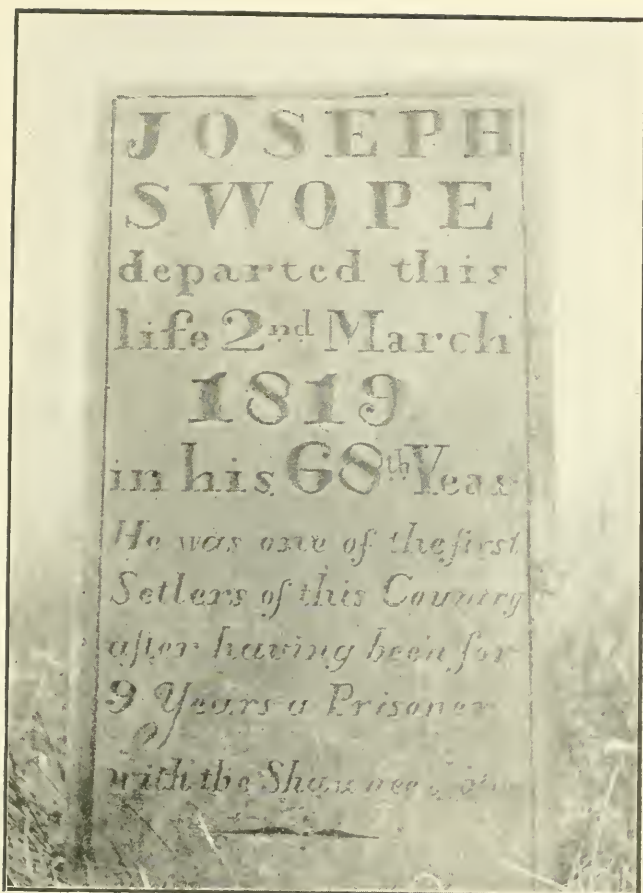 JOSEPH
SWOPE
departed this
life 2nd March
1819
in his 68th Year
He was one of the first
Setlers of this Country
after having been for
9 Years a Prisoner
with the Shawnee